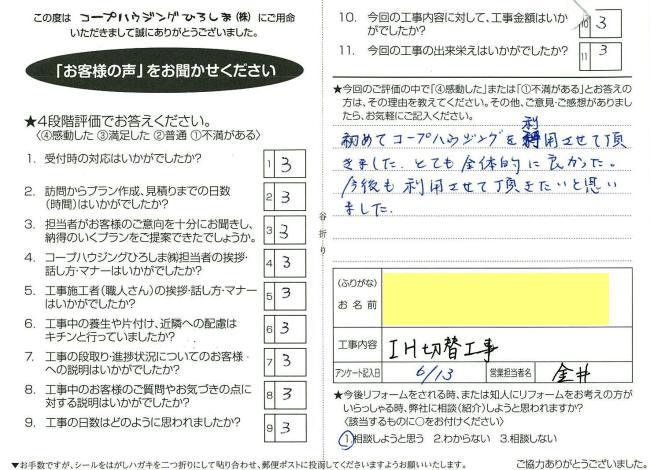 この度は コープハウジングひろしま(株) にご用命
いただきまして誠にありがとうございました。
「お客様の声」をお聞かせください
★4段階評価でお答えください。
〈④感動した ③満足した ②普通 ①不満がある〉
1. 受付時の対応はいかがでしたか?
1 3
2. 訪問からプラン作成、見積りまでの日数
(時間)はいかがでしたか?
2 3
3. 担当者がお客様のご意向を十分にお聞きし、
納得のいくプランをご提案できたでしょうか。
3 3
4. コープハウジングひろしま㈱担当者の挨拶・
話し方・マナーはいかがでしたか?
4 3
5. 工事施工者(職人さん)の挨拶・話し方・マナー
はいかがでしたか?
5 3
6. 工事中の養生や片付け、近隣への配慮は
キチンと行っていましたか?
6 3
7. 工事の段取り・進捗状況についてのお客様
への説明はいかがでしたか?
7 3
8. 工事中のお客様のご質問やお気づきの点に
対する説明はいかがでしたか?
8 3
9. 工事の日数はどのように思われましたか?
9 3
▼お手数ですが、シールをはがしハガキを二つ折りにして貼り合わせ、郵便ポストに投函してくださいますようお願いいたします。
谷折り
10. 今回の工事内容に対して、工事金額はいか
がでしたか?
10 3
11. 今回の工事の出来栄えはいかがでしたか?
11 3
★今回のご評価の中で「④感動した」または「①不満がある」とお答え
の方は、その理由を教えてください。その他、ご意見・ご感想がありまし
たら、お気軽にご記入ください。
初めてコープハウジングを利用させて頂
きました。とても全体的に良かった。
今後も利用させて頂きたいと思い
ました.
(ふりがな)
お名前
工事内容
IH切替工事
アンケート記入日
6/13
営業担当者名
金井
★今後リフォームをされる時、または知人にリフォームをお考えの方が
いらっしゃる時、弊社に相談(紹介)しようと思われますか?
〈該当するものに○をお付けください〉
1.相談しようと思う 2.わからない 3.相談しない
ご協力ありがとうございました。